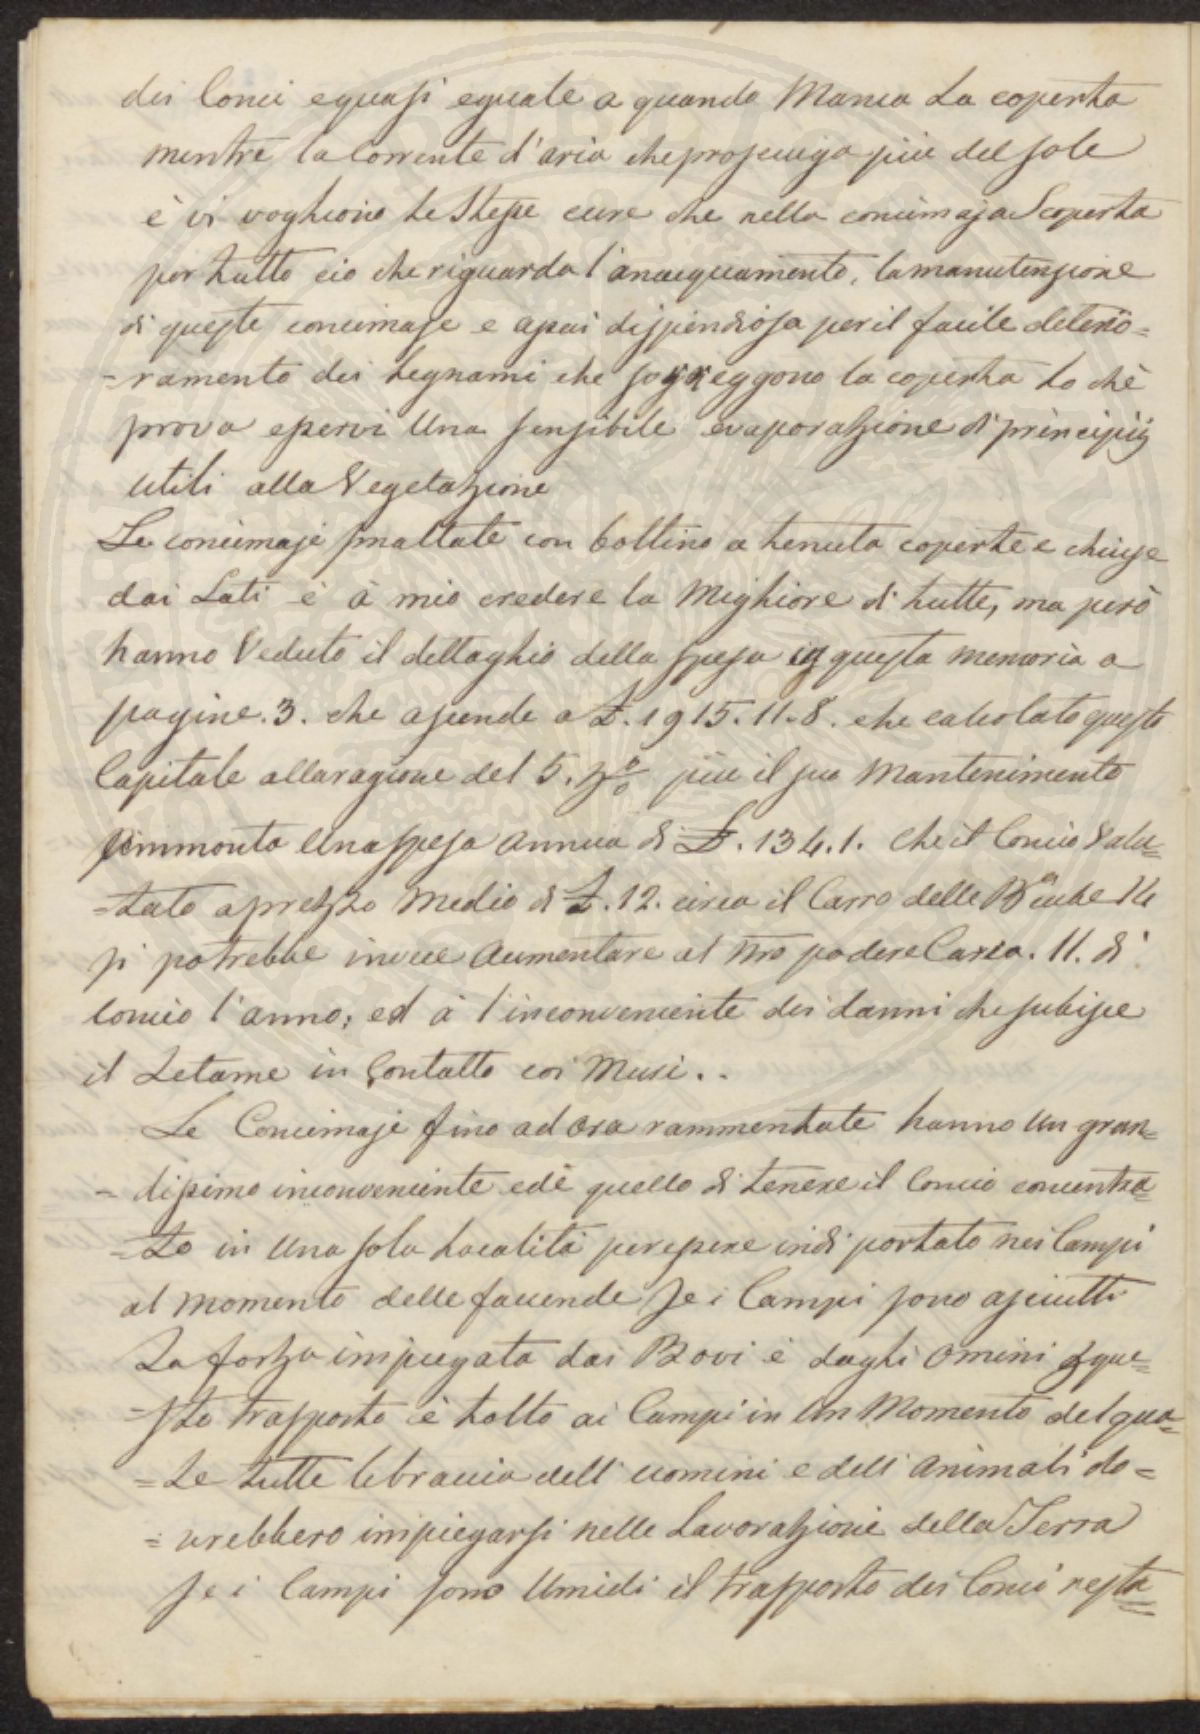 dei Conci equasi eguale a quando Manca La coperta
mentre la Corrente d'aria che prosciuga più del sole
è vi vogliono le Stesse cure che nella concimaja Scoperta
per tutto ciò che riguarda l'anacquamento, la manutenzione
di queste concimaje e assai dispendiosa per il facile deterio=
=ramento dei Legnami che sorreggono la coperta Lo chè
prova esservi Una sensibile evaporazione di principij
utili alla Vegetazione
Le concimaje smaltate con bottino a tenuta coperte e chiuse
dai Lati è à mio credere la Migliore di tutte, ma però
hanno Veduto il dettaglio della spesa in questa memoria a
pagine. 3. che ascende a £. 1915. 11. 8. che calcolato questo
Capitale allaragione del 5. p% più il suo Mantenimento
ammonta Una spesa annua di £. 134. 1. che il Concio Valu=
=tato aprezzo Medio di £. 12. circa il Carro delle
si potrebbe invece Aumentare al nro podere Carra. 11. di
Concio l'anno; ed à l'inconveniente dei danni che subisce
il Letame in Contatto coi Muri..
Le Concimaje fino ad ora rammentate hanno Un gran=
=dissimo inconveniente edè quello di tenere il Concio concentra=
=to in Una sola Località peressere indi portato nei Campi
al momento delle faccende Se i Campi sono asciutti
La forza impiegata dai Bovi è dagli Omini que=
=sto trasporto è tolto ai Campi in Un Momento del qua=
=le tutte lebraccia dell'uomini e dell'animali do=
=vrebbero impiegarsi nelle Lavorazioni della Terra
Se i Campi sono Umidi il trasporto dei Conci resta=